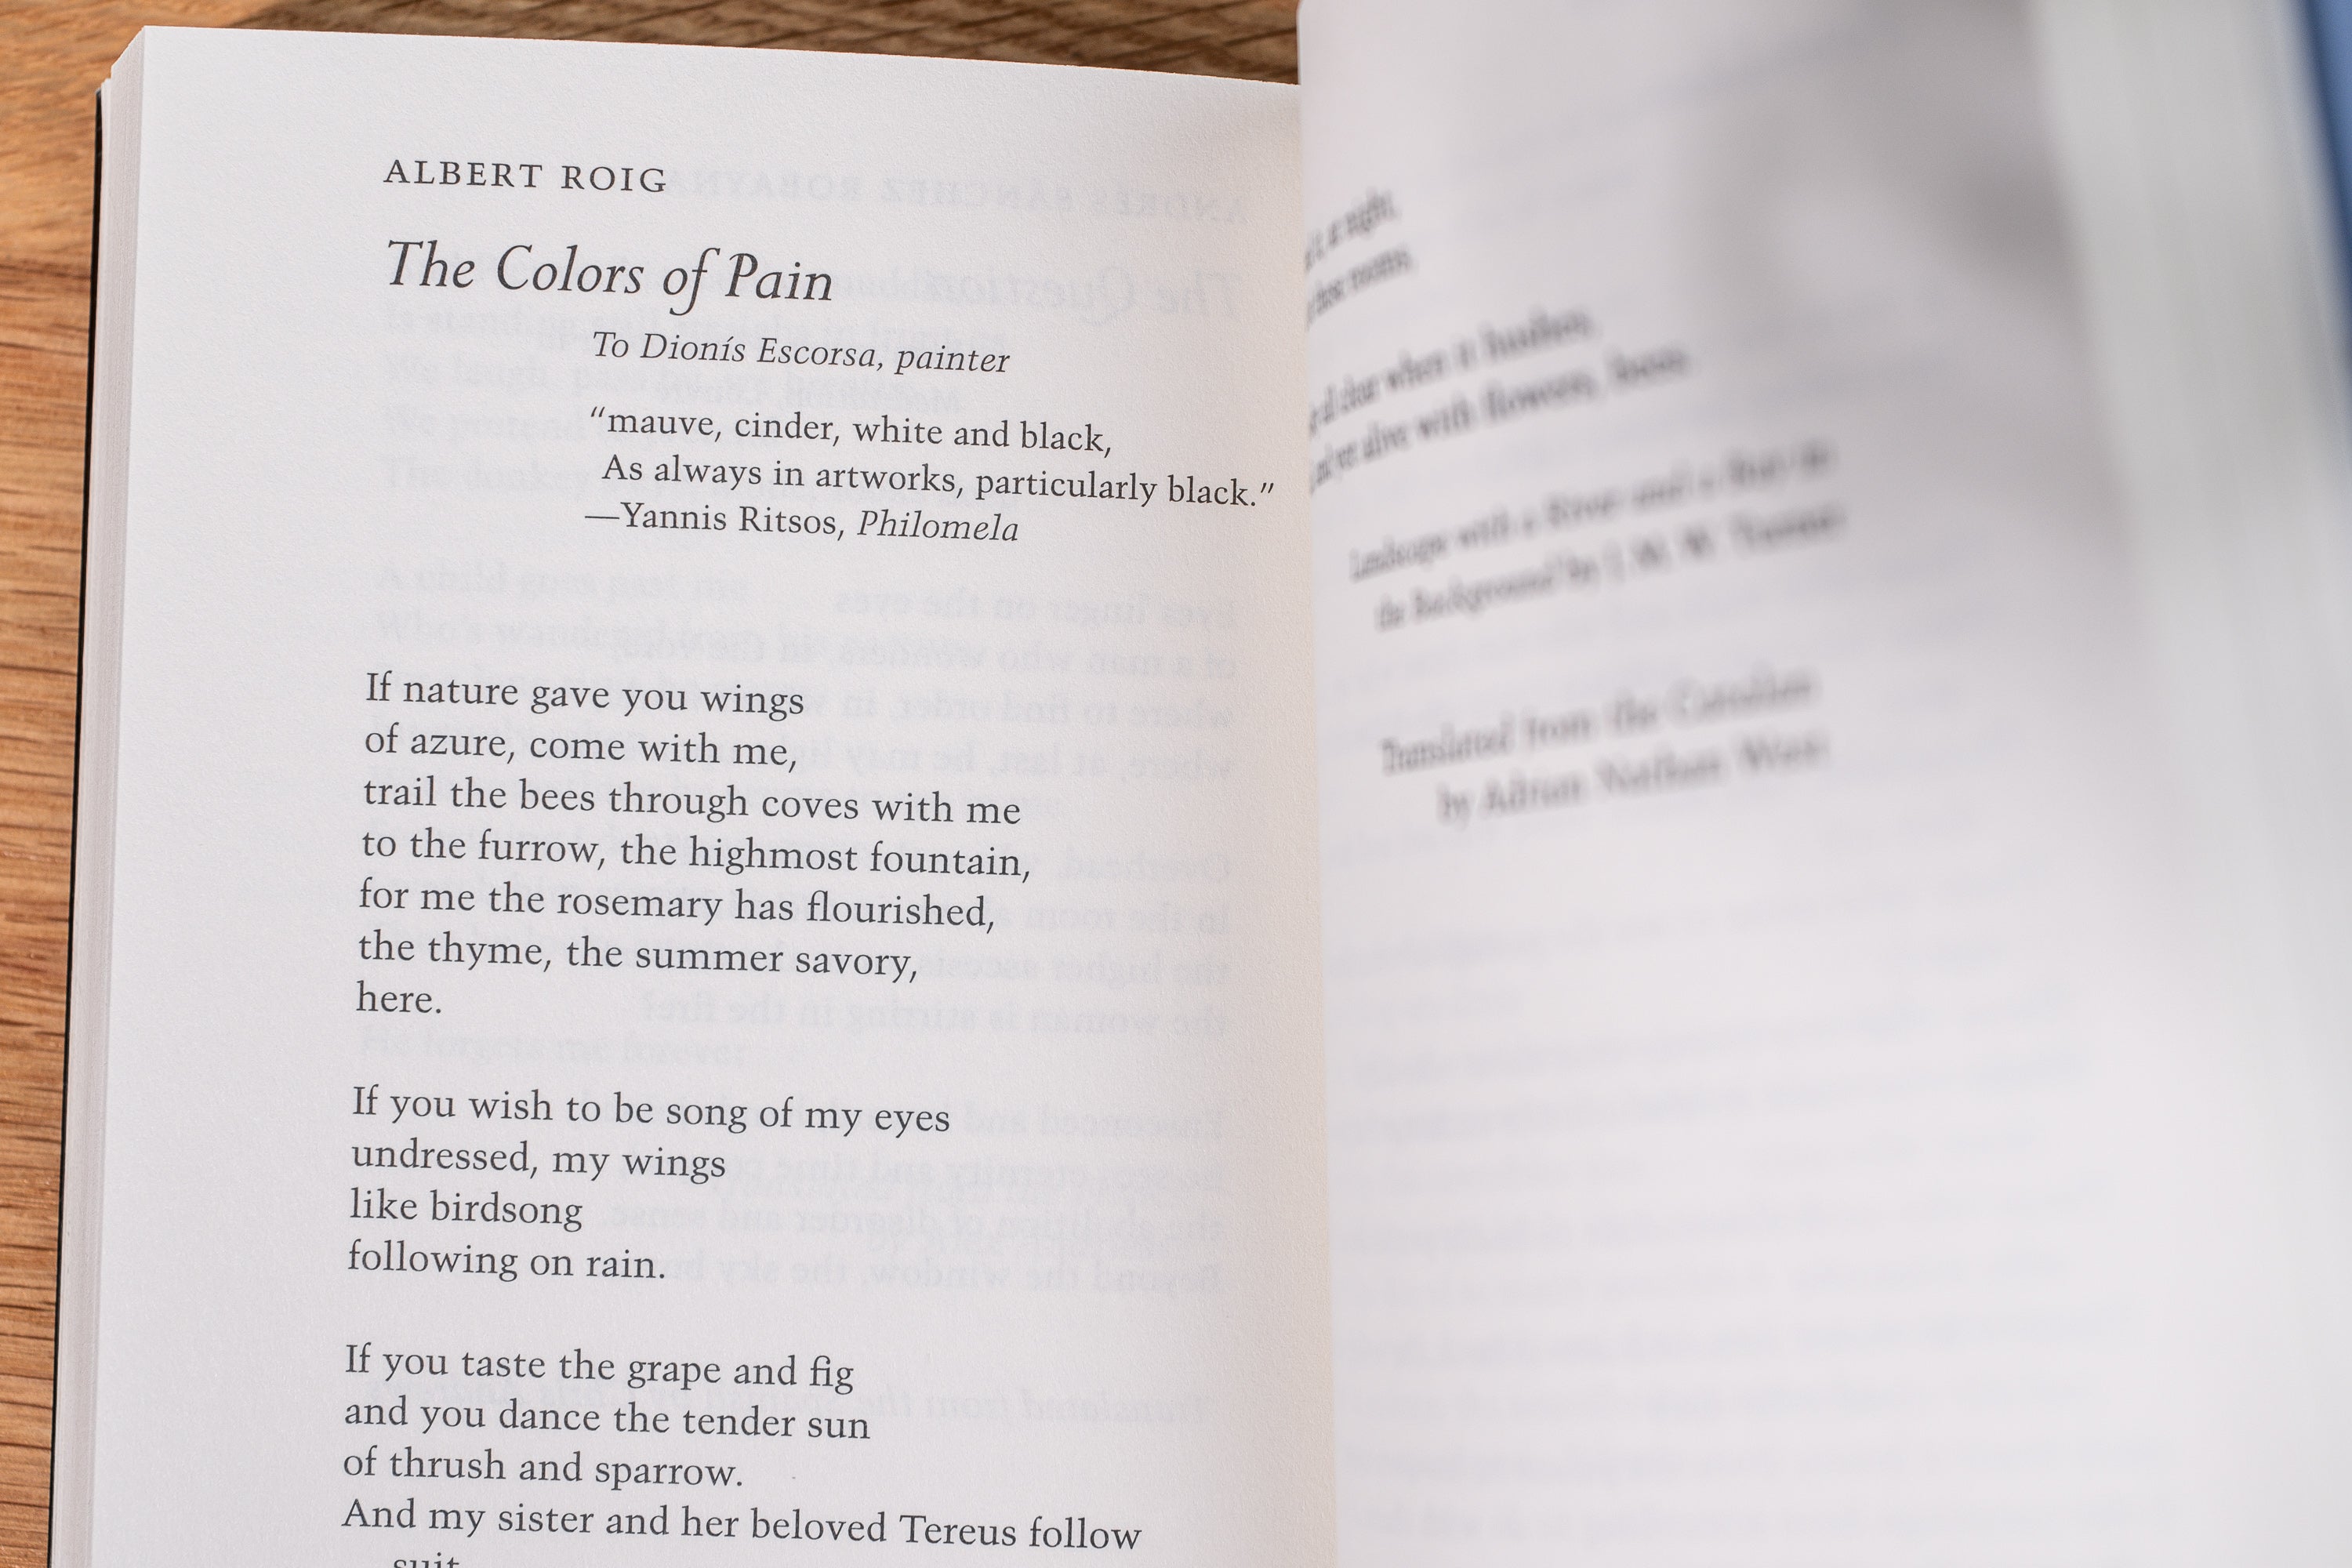 ALBERT ROIG
The Colors of Pain
To Dionís Escorsa, painter
“mauve, cinder, white and black,
As always in artworks, particularly black.”
—Yannis Ritsos, Philomela
If nature gave you wings
of azure, come with me,
trail the bees through coves with me
to the furrow, the highmost fountain,
for me the rosemary has flourished,
the thyme, the summer savory,
here.
If you wish to be song of my eyes
undressed, my wings
like birdsong
following on rain.
If you taste the grape and fig
and you dance the tender sun
of thrush and sparrow.
And my sister and her beloved Tereus follow
suit
at night,
rooms
when it hushes
alive with flowers,
Landscape with a River and a Bay in
the Background by J. M. W. Turner
Translated from the Catalan
by Adrian Nathan West